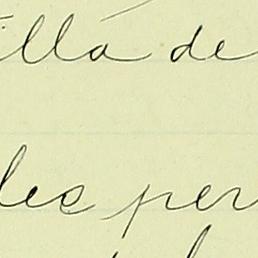 illa de
les per